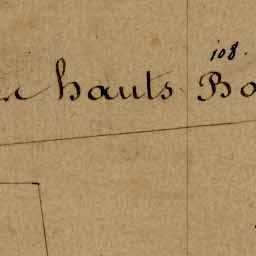 108.
hauts Bo